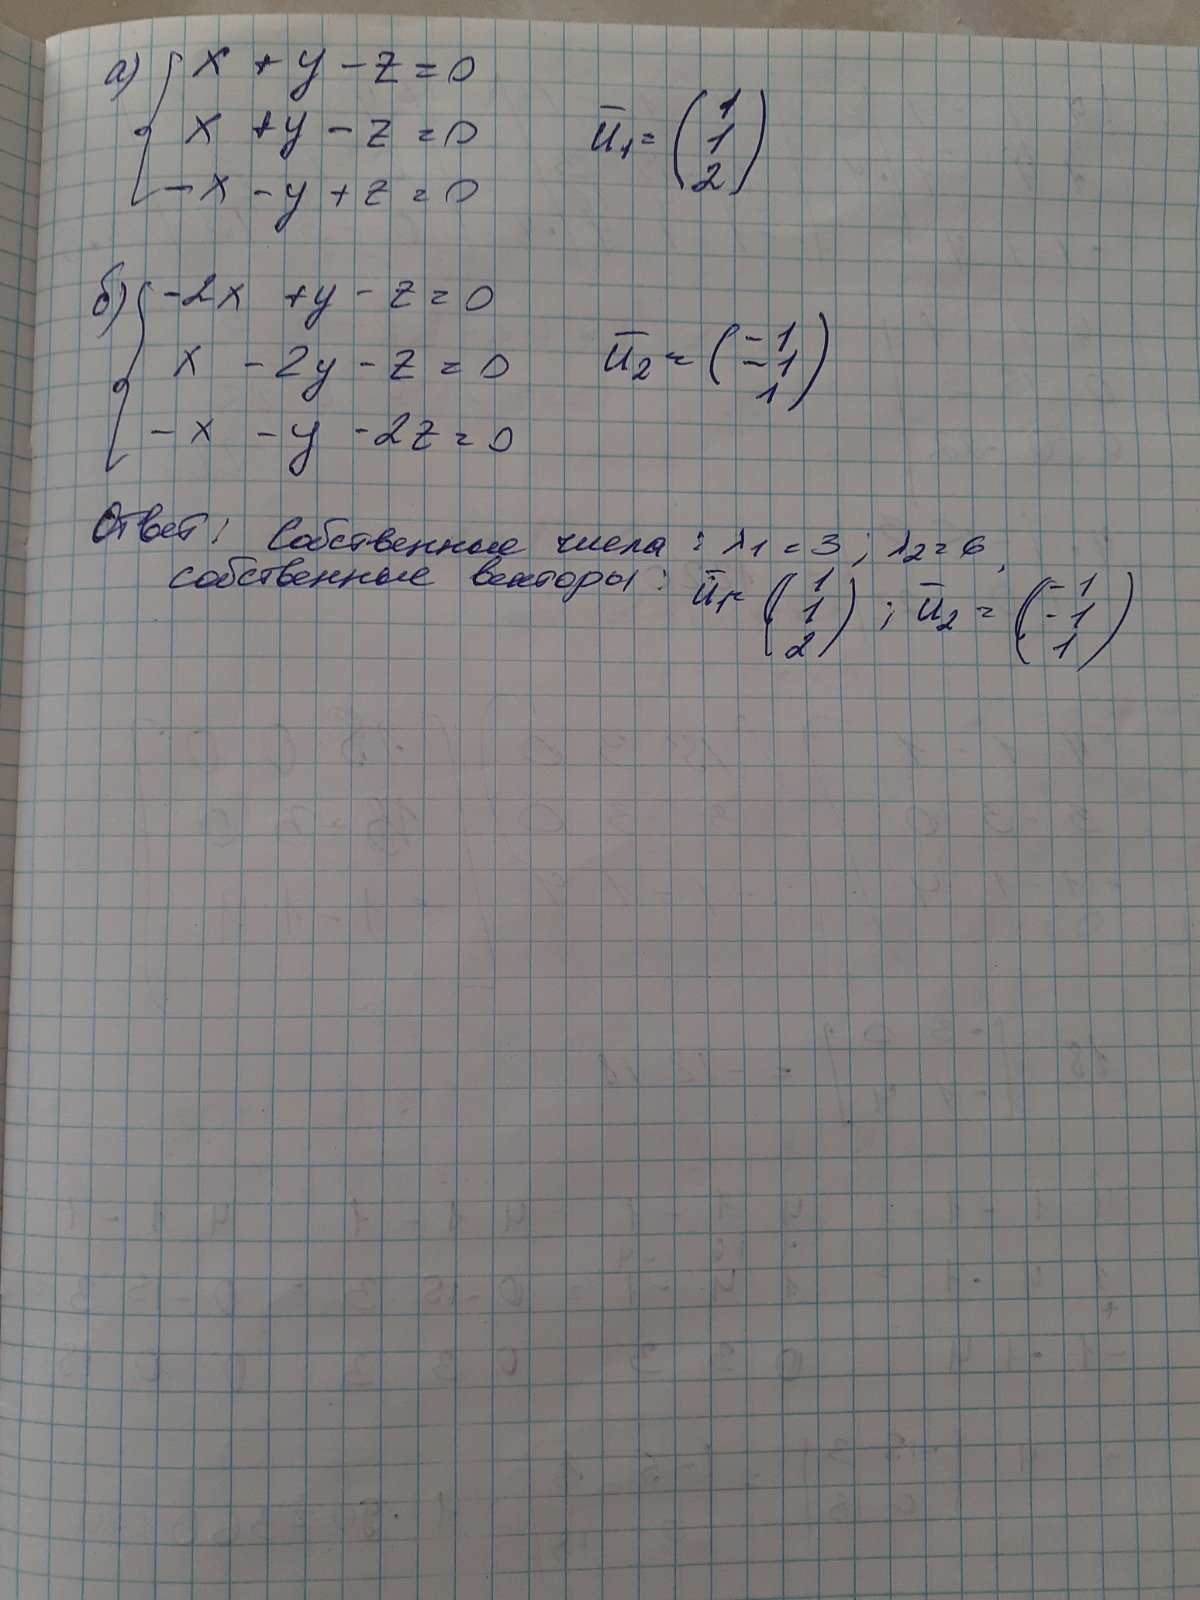 а) { x + y - z = 0
x + y - z = 0
-x - y + z = 0
ū₁ = (1 1 2)
б) { -2x + y - z = 0
x - 2y - z = 0
-x - y - 2z = 0
ū₂ = (-1 -1 1)
Ответ: Собственные числа: λ₁ = 3; λ₂ = 6,
собственные векторы: ū₁ = (1 1 2); ū₂ = (-1 -1 1)